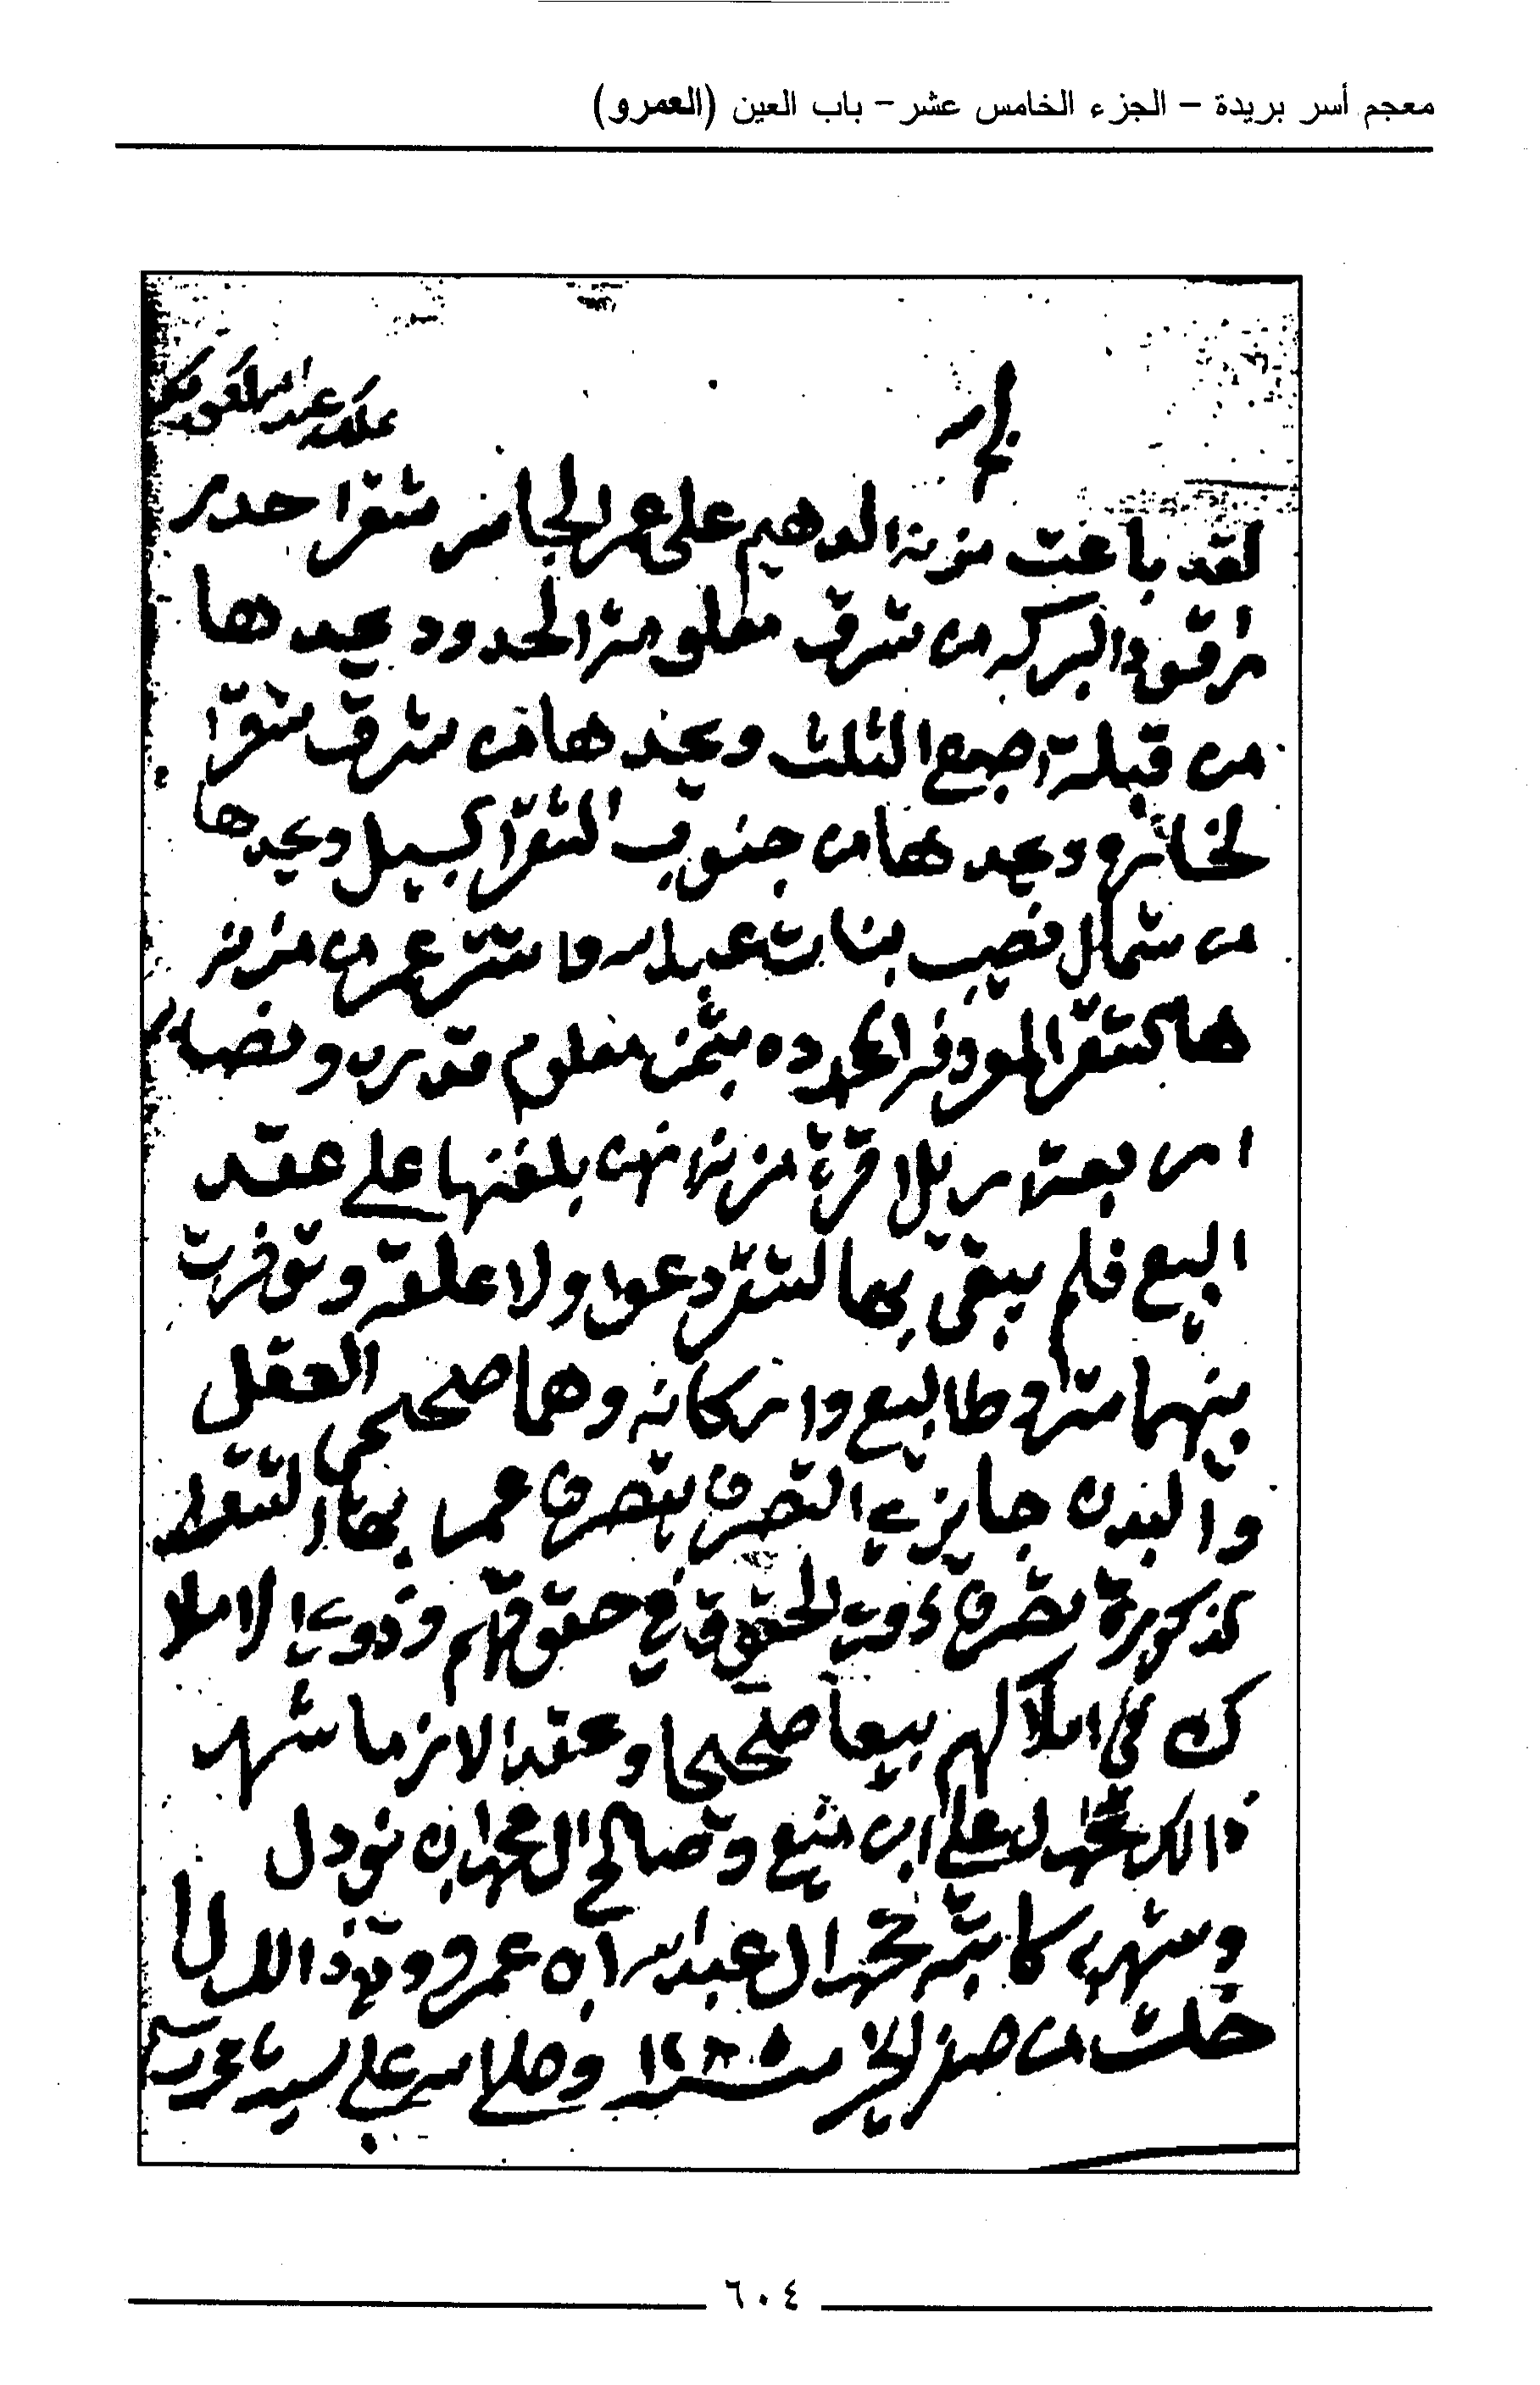 معجم أسر بريدة – الجزء الخامس عشر – باب العين (العمرو)
لقد باعت مزنه الدهيم على عمر الجاسر شقرا حدر
البركه من شرق معلومة الحدود يحدها
من قبلة الثلث ويحدها من شرق شقرا
ويحدها من جنوب الشقرا لسبيل ويحدها
من شمال نصيب بنات عبدالله واشتر عمر من مزنه
هالشقرا المحدده بثمن معلوم قدره ونصابه
اربعة ريل اقرة مزنه انهن بلغنها على عقد
البيع فلم يبقى بهالشقر دعوا ولا علقه وتوفرت
بينهما شروط البيع واركانه وهما صحيحي العقل
والبدن جايزي التصرف يتصرف عمر بهاالشقرا
لمذكورة تصرف ذوي الحقوق في حقوقهم وذوي الاملا
ك في املاكهم بيعا صحيحا وعقدا لازما شهد
ذالك محمد ال علي ابن منيع وصالح ال محمد ابن نودل
وشهد به كاتبه محمد ال عبدالله ابن عمرو وقع ذالك
خلت من صفر الخير سنة ١٢٨٥ وصلى الله على سيدنا محمد
٦٠٤